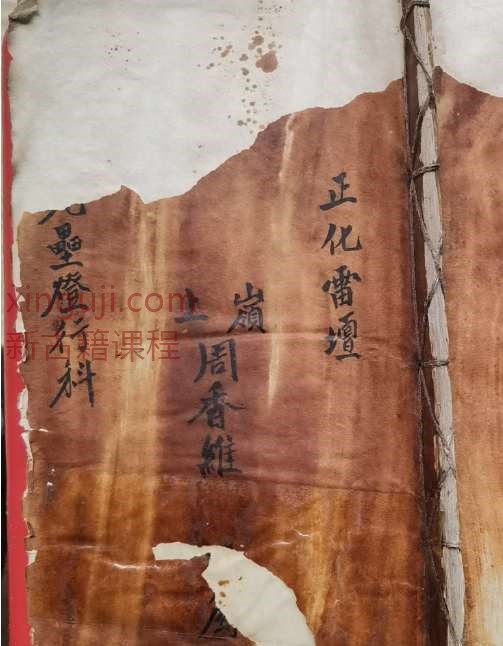 正化雷壇
嶺
上
周香維
壘燈行科
xinguji.com
新古籍课程